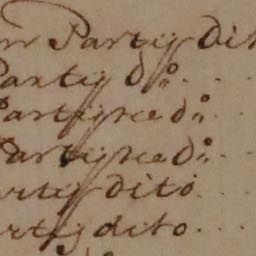 Een Partij Dit
Partij do
Partijtie do
Partijtie do
Partij dito
Partij dito